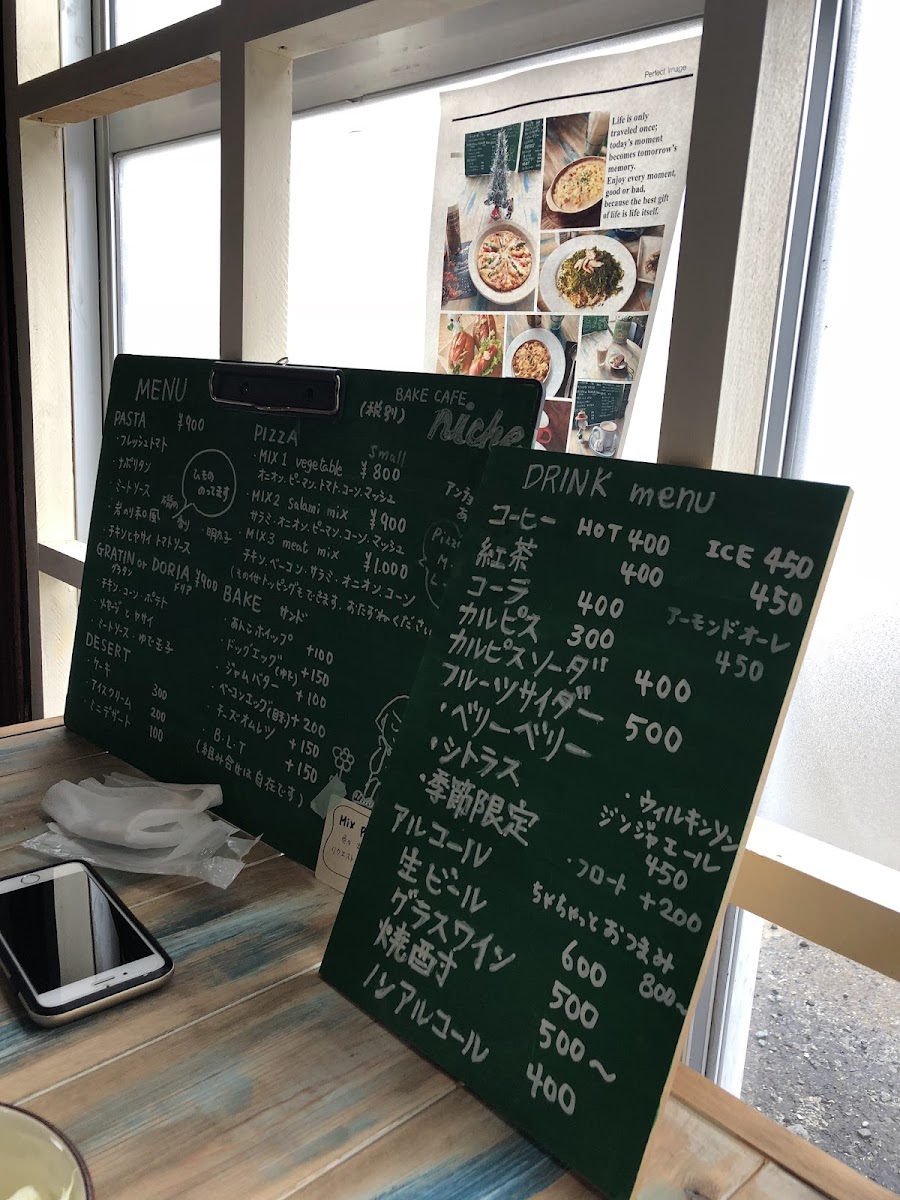 Perfect Image
Life is only
traveled once;
today's moment
becomes tomorrow's
memory.
Enjoy every moment,
good or bad,
because the best gift
of life is life itself.
MENU
BAKE CAFE
(税別)
niche
PASTA ¥900
・フレッシュトマト
・ナポリタン
・ミートソース
・和風
・明太子
・チキンとヤサイ トマトソース
ひもの
のってます
GRATIN or DORIA ¥900
グラタン
ドリア
・チキン・コーン・ポテト
・ソーセージとヤサイ
・ミートソース・ゆで玉子
DESERT
・ケーキ 300
・アイスクリーム 200
・ミニデザート 100
PIZZA
small
・MIX 1 vegetable ¥800
オニオン、ピーマン、トマト、コーン、マッシュ
・MIX2 salami mix ¥900
サラミ・オニオン、ピーマン、コーン、マッシュ
・MIX3 meat mix ¥1.000
チキン、ベーコン・サラミ・オニオン、コーン
(その他トッピングもできます。おたずねください
BAKE サンド
・あんこホイップ +100
・ドッグエッグ(ゆで) +150
・ジャムバター +100
・ベーコンエッグ(目玉) +200
・チーズオムレツ +150
・B・L・T +150
(組み合せは自在です)
DRINK menu
コーヒー HOT 400 ICE 450
紅茶 400 450
コーラ 400
アーモンドオーレ
450
カルピス 300
カルピスソーダ 400
フルーツサイダー 500
・ベリーベリー
・シトラス
・季節限定
・ウィルキンソン
ジンジャエール
450
・フロート +200
アルコール
ちゃちゃっとおつまみ
800〜
生ビール 600
グラスワイン 500
焼酎 500〜
ノンアルコール 400